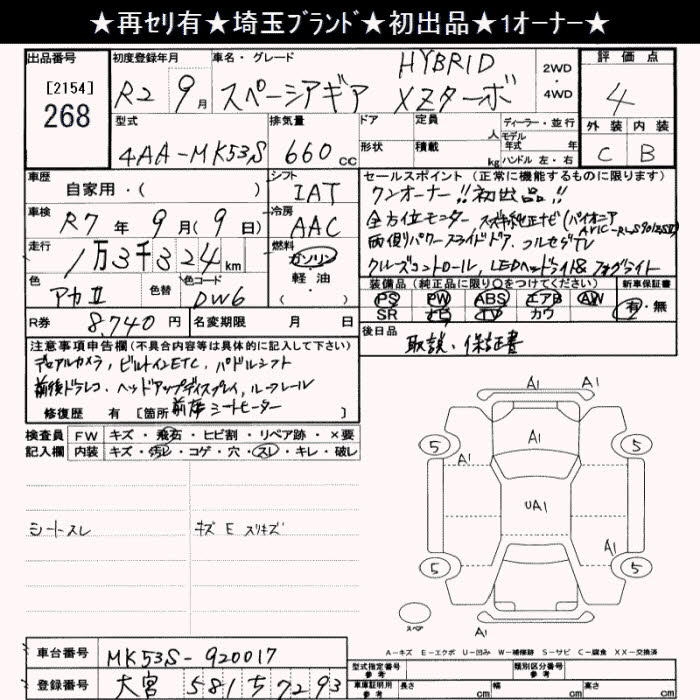 ★再セリ有★埼玉ブランド★初出品★1オーナー★
出品番号
[2154]
268
初度登録年月
R2 9月
車名・グレード
HYBRID
スペーシアギア XZターボ
2WD
・
4WD
評価点
4
外装 内装
C B
型式
4AA-MK53S
排気量
660 cc
ドア
形状
定員
人
積載
kg
ディーラー・並行
モデル
年式 年
ハンドル 左・右
車歴
自家用・( )
シフト
IAT
車検
R7年 9月(9日)
冷房
AAC
走行
1万3千324km
燃料
ガソリン
軽油
( )
色
アカII
色替
色コード
DW6
R券
8,740円
名変期限 月 日
セールスポイント(正常に機能するものに限ります)
ワンオーナー!!初出品!!
全方位モニター スズキ純正ナビ(パイオニア
両側パワースライドドア、フルセグTV
クルーズコントロール、LEDヘッドライト& フォグライト
装備品(純正品に限り○をつけてください)
PS PW ABS エアB AW
SR ナビ TV カワ
新車保証書
有・無
後日品
取説・保証書
注意事項申告欄(不具合内容等は具体的に記入して下さい)
デュアルカメラ、ビルトインETC、パドルシフト
前後ドラレコ、ヘッドアップディスプレイ、ルーフレール
修復歴 有 [箇所 前席シートヒーター ]
検査員
記入欄
FW キズ・飛石・ヒビ割・リペア跡・×要
内装 キズ・汚レ・コゲ・穴・スレ・キレ・破レ
シートスレ
キズ E スリキズ
A1 A1
A1
5 5
A1
UA1
A1
5 5
A1
スペア
A-キズ E-エクボ U-凹み W-補修跡 S-サビ C-腐食 XX-交換済
車台番号
MK53S-920017
登録番号
大宮 581 ち 7293
型式指定番号
参考
類別区分番号
参考
車庫証明用
参考
長さ cm
幅 cm
高さ cm